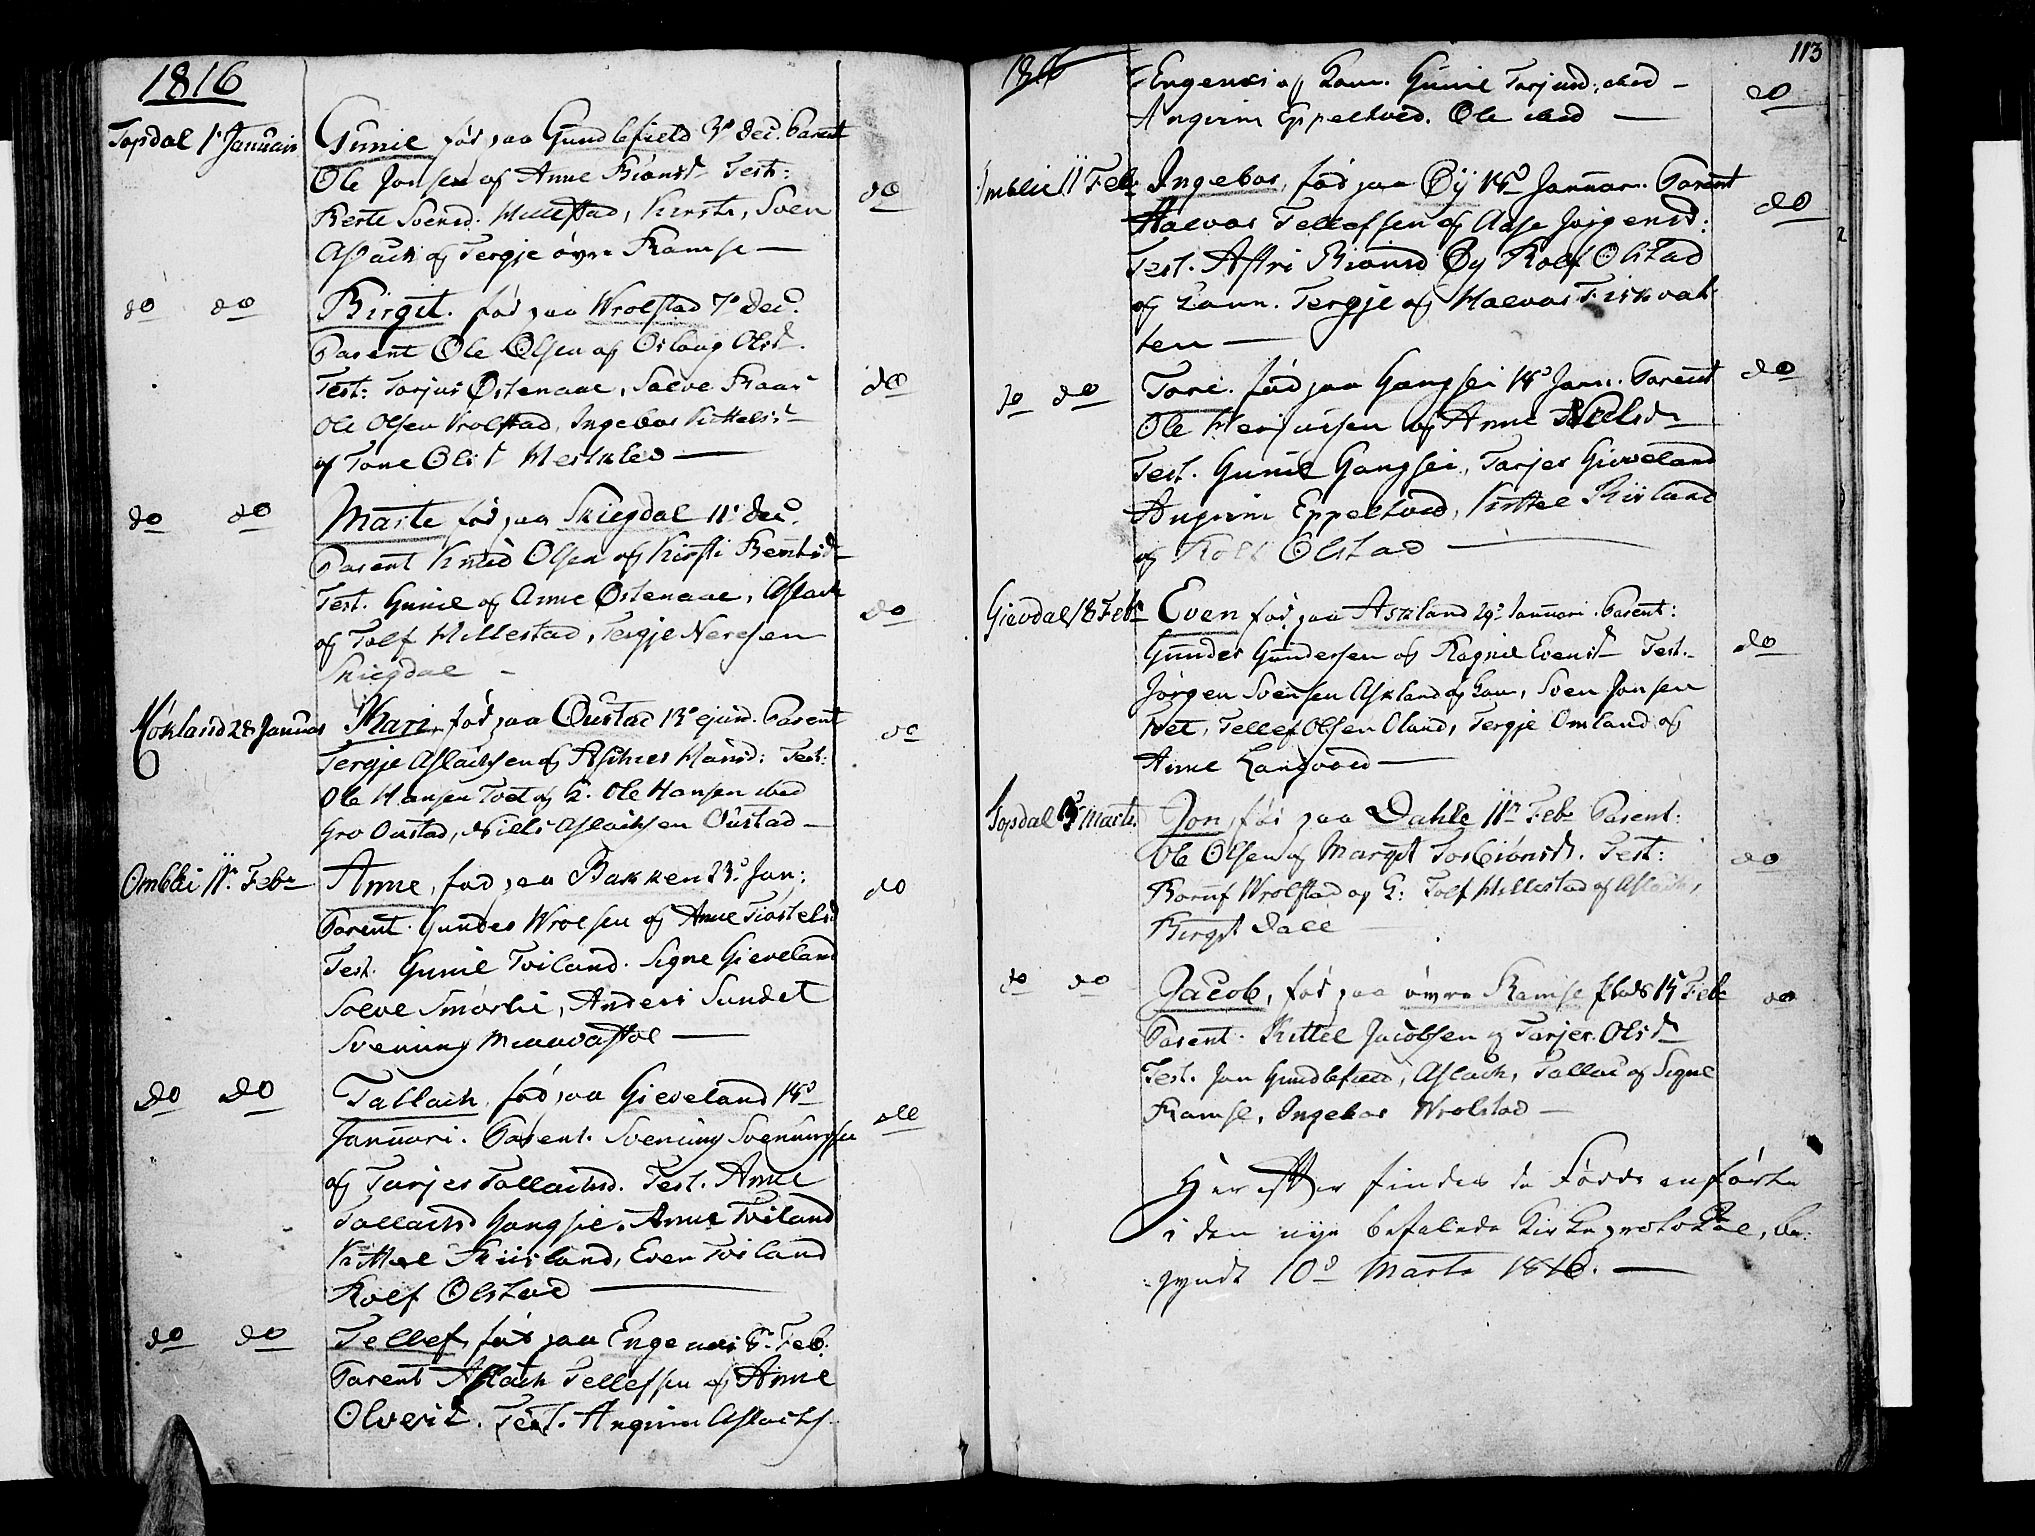 1816
Topsdal 1ste Januari
Gunil fød paa Gundlefield 3e Dec. Parent
Ole Jonsen og Anne Biønsd Test:
Berte Svensd. Hillestad, Kirsti, Sven
Aslach og Tergje øvre Ramse —
do
do do
Birgit. fød paa Wrolstad 7de Dec.
Parent Ole Olsen og Oslaug Olsd.
Test: Tarjus Østenaae, Salve
Ole Olsen Wrolstad, Ingebor Kittelsd
og Tone Olsd —
do
do do
Marte fød paa Skiegdal 11te Dec.
Parent Knud Olsen og Kirsti Berntsd
Test. Gunil og Anne Østenaae, Aslach
og Tolf Hillestad, Tergje Nersen
Skiegdal —
do
Høkland 28 Januar
Kari, fød paa Oustad 13de ejusd. Parent
Tergje Aslachsen og Hansd: Test:
Ole Hansen Tvet og K. Ole Hansen ibid
Gro Oustad, Niels Aslachsen Oustad —
do
Omblii 11te Febr
Anne, fød paa Bakken 23de Jan:
Parent. Gunder Wrolsen og Anne Tiostelsd
Test. Gunil Tviland. Signe Gieveland
Solve Smørlii, Anders Sundet
Svening —
do
do do
Tallach, fød paa Gieveland 14de
Januari. Parent. Svening Sveningsen
og Tarjer Tallachsd. Test. Anne
Tallachsd Gangsei. Anne Tviland
Kittel Kiisland, Even Tviland
Rolf Olstad —
do
do do
Tellef, fød paa Engenæs 5te Feb.
Parent Aslach Tellefsen og Anne
Olvesd. Test. Angrim Aslachs.
1816
113
Engenæs og Konn. Gunil Tarjusd, ibid —
Angrim Eppeltved. Ole ibid —
do
Omblie 11 Febr
Ingebor, fød paa Øÿ 14de Januar. Parent
Halvor Tellefsen og Aase Jørgensd:
Test. Astri Biønsd Øy Rolf Olstad
og Konn. Tergje og Halvor Fiskvat-
ten —
do
do do
Tore. fød paa Gangsei 14de Jan. Parent
Ole Herjussen og Anne Nielsd
Test. Gunil Gangsei, Tarjer Gieveland
Angrim Eppeltved, Kittel Kiisland
og Rolf Olstad —
do
Gievdal 18 Febr
Even fød paa Askland 29de Januari. Parent:
Gunder Gundersen og Ragnil Evensd Test.
Jørgen Svensen Askland og Kon, Sven Jonsen
Tvet, Tellef Olsen Oland, Tergje Omland og
Anne Langvoed —
do
Topsdal 3 Marti.
Jon, fød paa Dahle 11te Febr Parent:
Ole Olsen og Margit Torbiønsd. Test:
Wrolstad og K: Tolf Hillestad og Aslach,
Birgit Dale —
do
do do
Jacob, fød paa øvre Ramse 15 Febr
Parent. Kittel Jacobsen og Tarjer Olsd
Test. Jon Gundlefield, Aslach, Tallac og Signe
Ramse, Ingebor Wrolstad —
do
Herefter findes de Fødde anførte
i den nye befalede Kirkeprotokol, be-
gyndt 10de Marts 1816. —